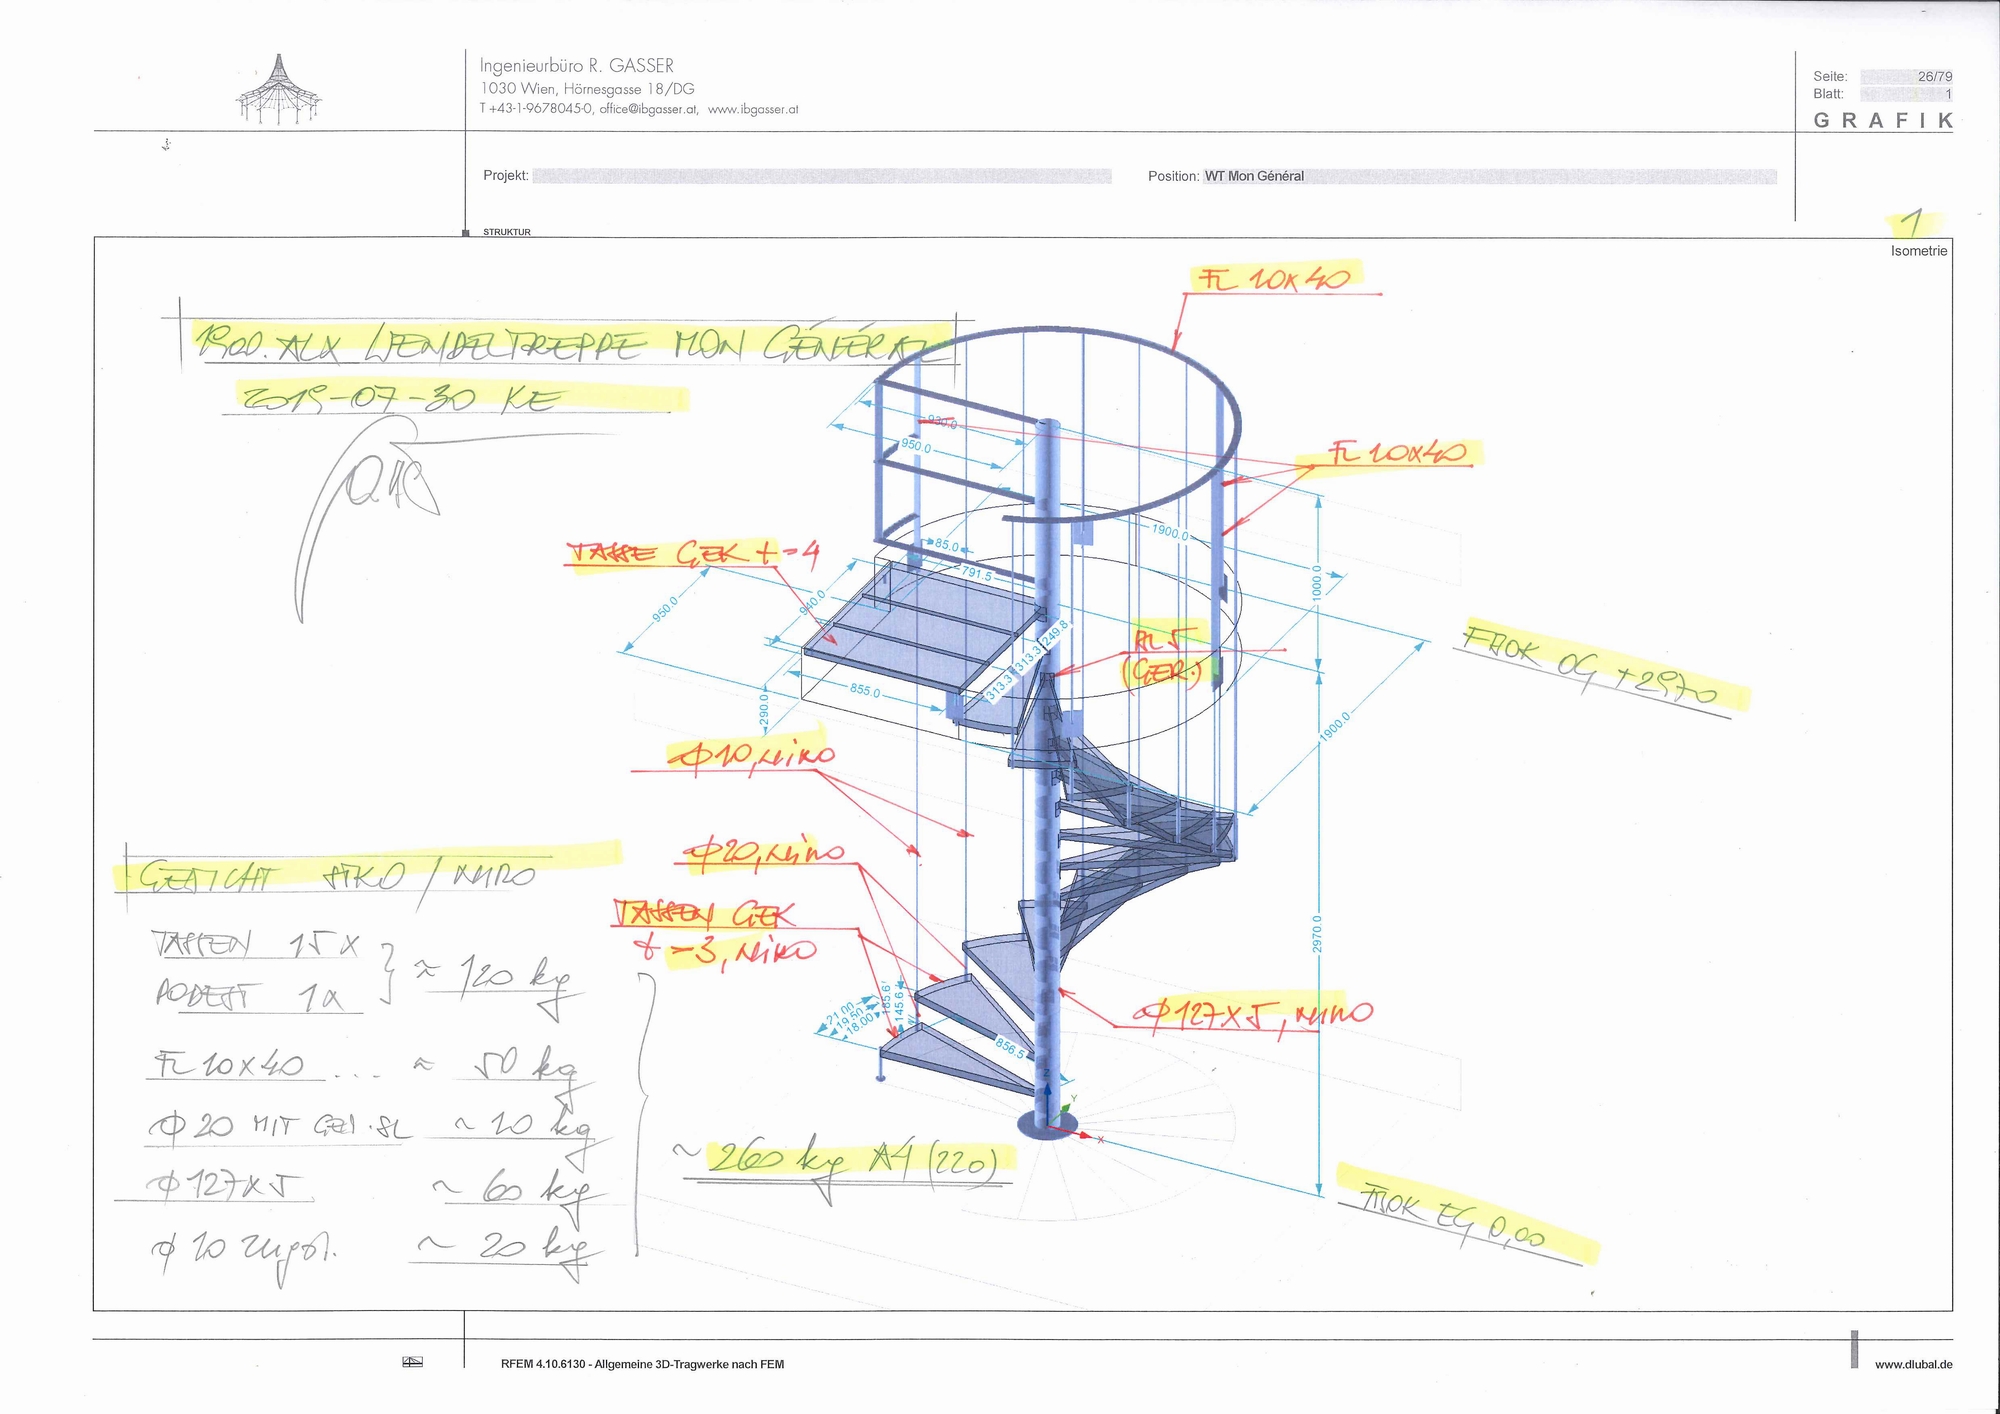 Ingenieurbüro R. GASSER
1030 Wien, Hörnesgasse 18/DG
T +43-1-9678045-0, office@ibgasser.at, www.ibgasser.at
Seite: 26/79
Blatt: 1
GRAFIK
Projekt:
Position: WT Mon Général
STRUKTUR
1
Isometrie
WENDELTREPPE MON GÉNÉRAL
2019-07-30 KE
FL 10x40
FL 10x40
TASSE GEK t=4
(GER.)
FBOK OG +2970
Φ10, NIRO
Φ20, NIRO
TASSEN GEK
t=3, NIRO
Φ127x5, NIRO
FBOK EG 0,00
930.0
950.0
1900.0
85.0
791.5
1000.0
950.0
940.0
249.8
313.3
313.3
855.0
290.0
1900.0
2970.0
185.6
145.6
21.00
19.50
18.00
856.5
Z
Y
X
GEWICHT STKO / NIRO
TASSEN 15x
PODEST 1x
≈ 120 kg
FL 10x40 ... ≈ 50 kg
Φ20 MIT ~ 10 kg
Φ127x5 ~ 60 kg
Φ10 ~ 20 kg
~ 260 kg A4 (220)
RFEM 4.10.6130 - Allgemeine 3D-Tragwerke nach FEM
www.dlubal.de